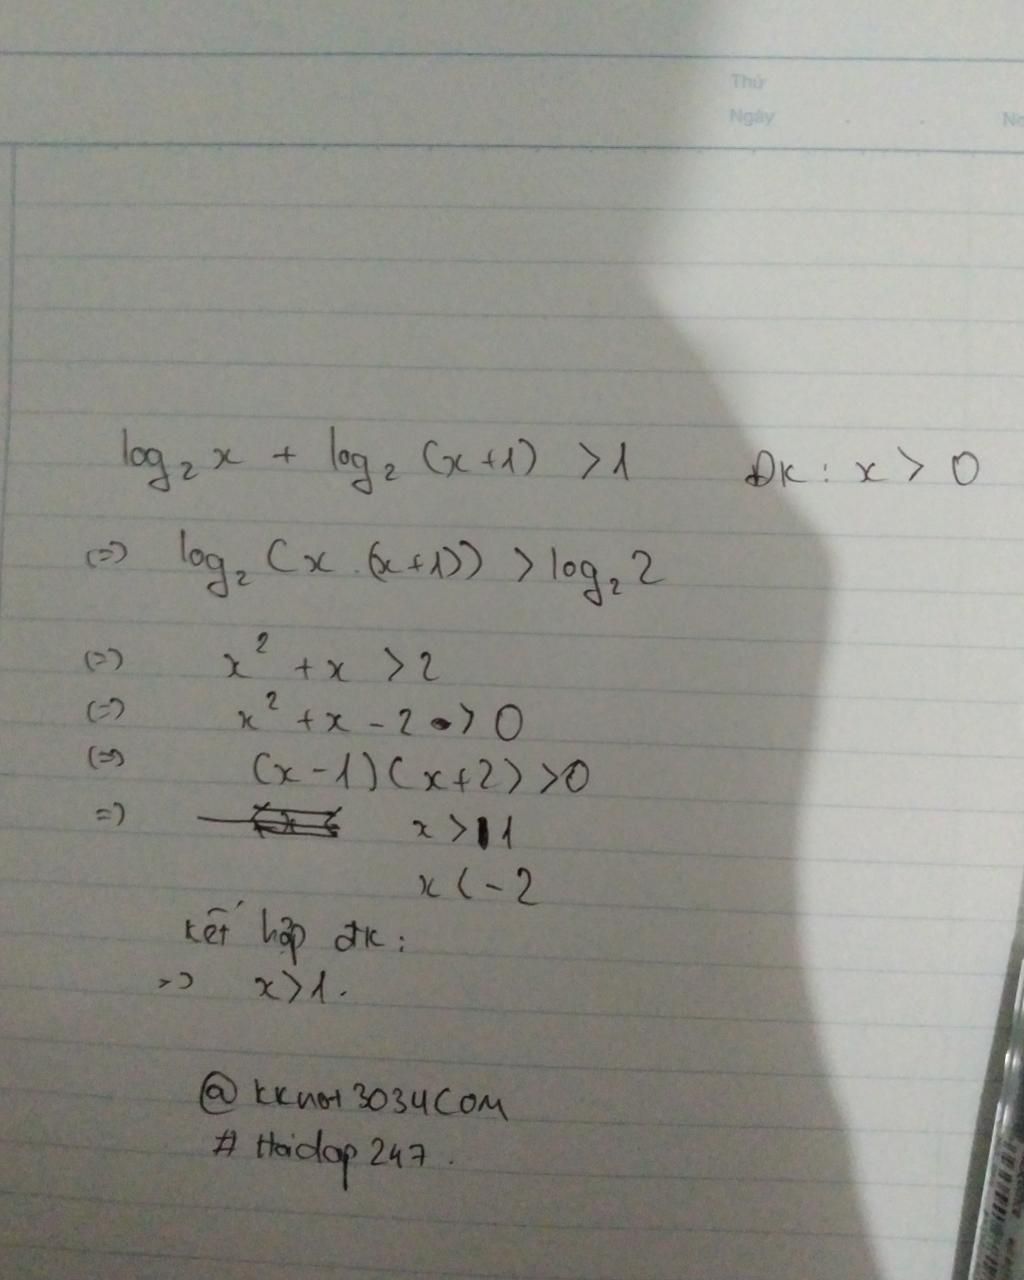 Thứ
Ngày
log₂ x + log₂ (x+1) > 1 ĐK : x > 0
(=) log₂ (x . (x+1)) > log₂ 2
(=) x² + x > 2
(=) x² + x - 2 > 0
(=) (x - 1) (x + 2) > 0
=) x > 1
x < -2
kết hợp đk :
=) x > 1.
3034COM
# Hoidap 247 .